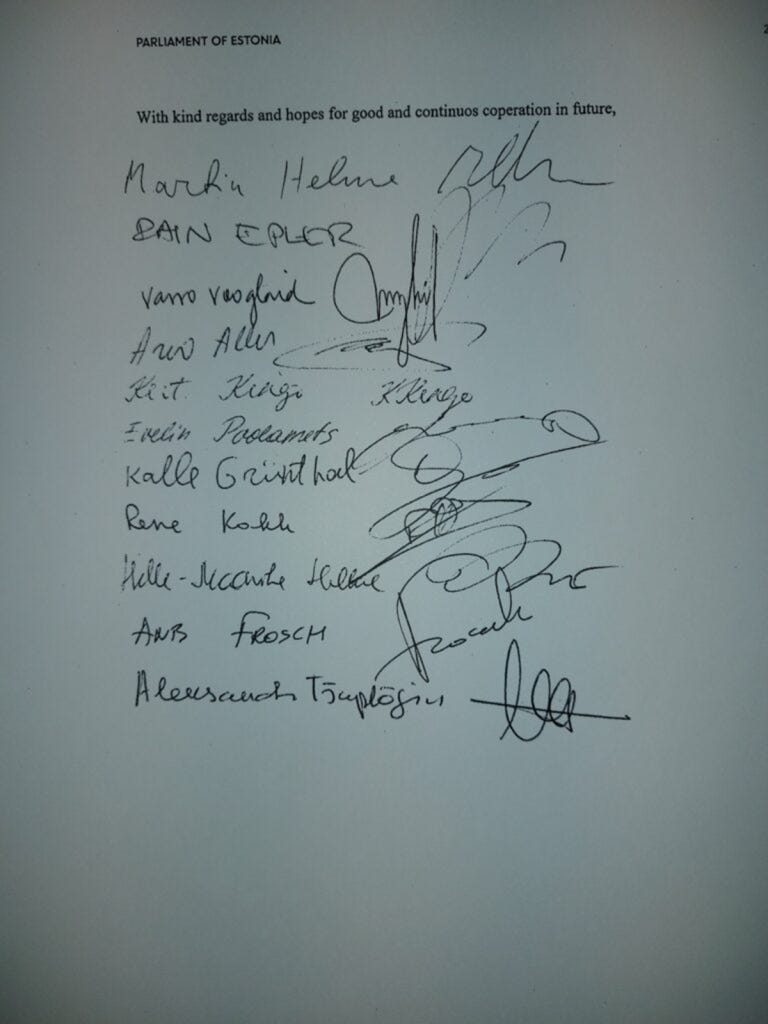 PARLIAMENT OF ESTONIA
2
With kind regards and hopes for good and continuos coperation in future,
Martin Helme
RAIN EPLER
Varro Vooglaid
Arvo Aller
Keit Kingo KKingo
Evelin Poolamets
Kalle Grünthal
Rene Kokk
Helle-Moonika Helme
ANTS FROSCH
Aleksandr Tšaplõgin